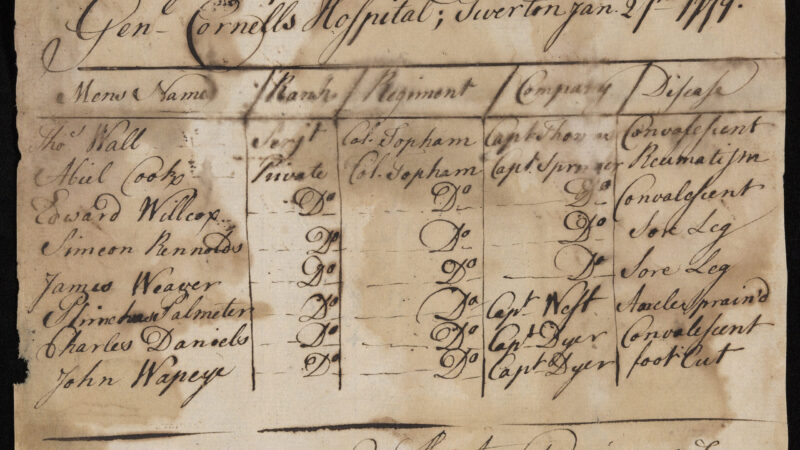 Genl Cornells Hospital; Tiverton Jan. 21st 1779.
Mens Names Rank Regiment Company Disease
Thos Wall Serjt Col. Topham Capt Convalescent
Abiel Cook Private Col. Topham Capt Springer Reumatism
Edward Willcox Do Do Do Convalescent
Simeon Rennolds Do Do Do Sore Leg
James Weaver Do Do Do Sore Leg
Palmeter Do Do Capt West Ancle Sprain'd
Charles Daniels Do Do Capt Dyer Convalescent
John Wapeye Do Do Capt Dyer foot Cut